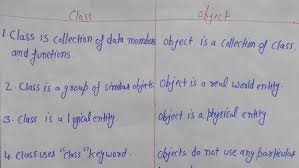 Class Object
1. Class is collection of data members object is a collection of class.
and functions.
2. Class is a group of similar objects. Object is a real world entity.
3. Class is a logical entity. object is a physical entity.
4. Class uses "class" keyword. objects do not use any particular